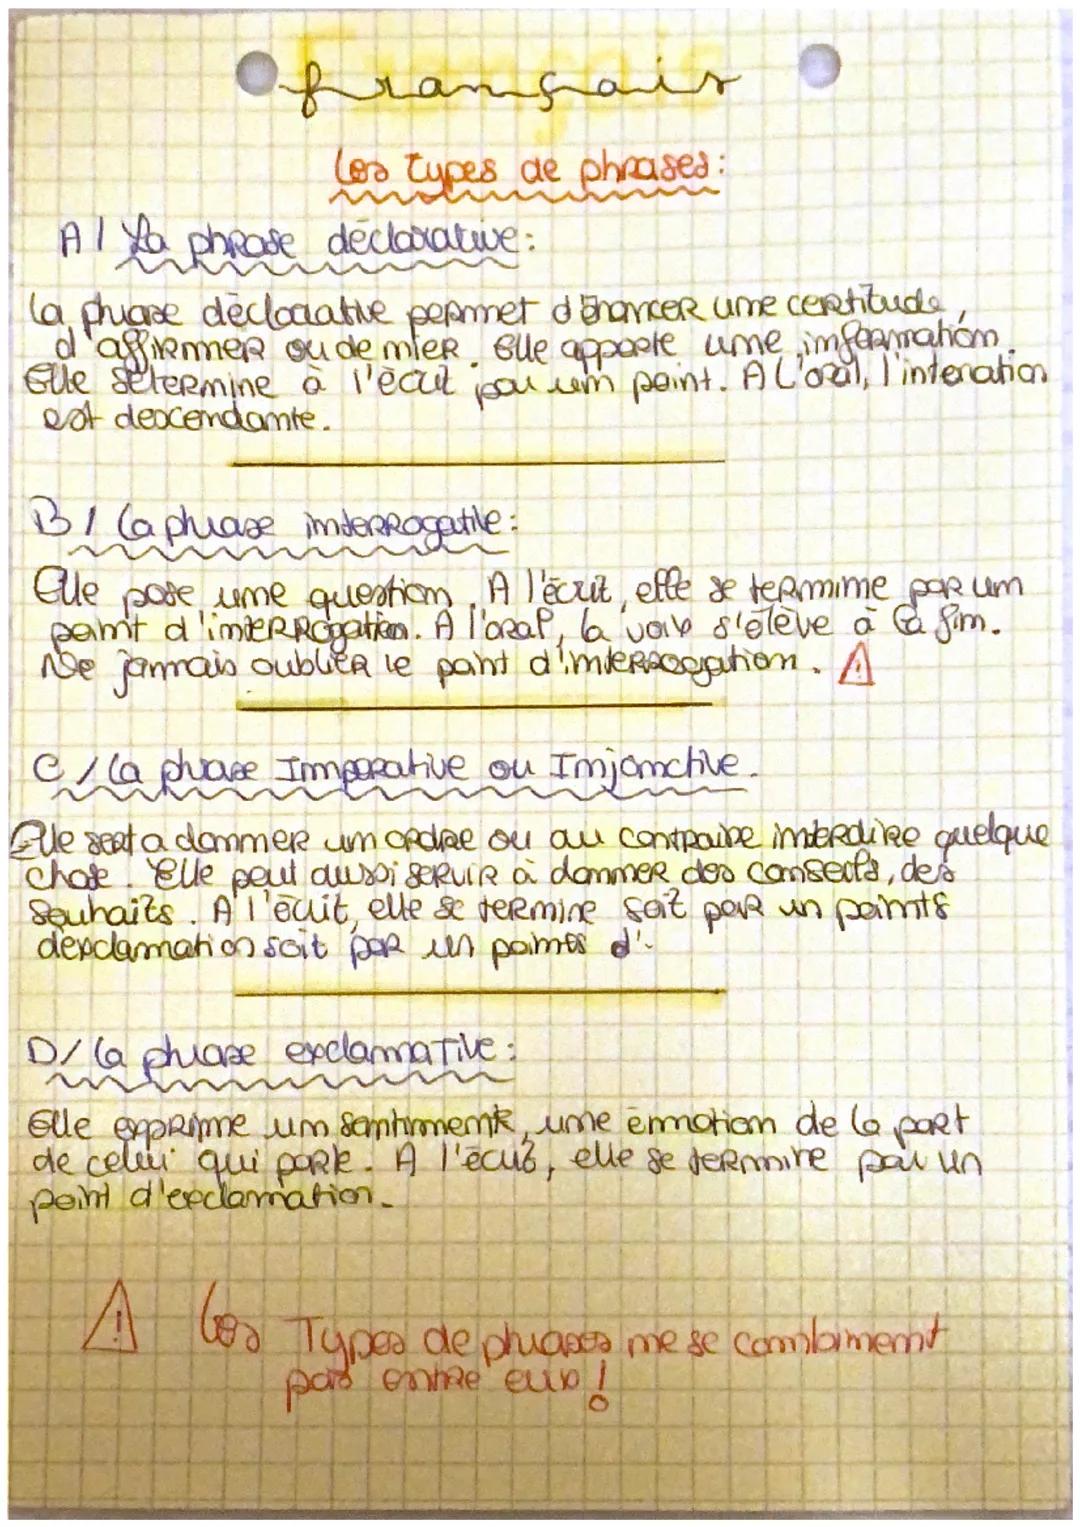 français
Les Types de phrases:
A / La phrase déclarative:
La phrase déclarative permet d'énoncer une certitude,
d'affirmer ou de nier. Elle apporte une information.
Elle setermine à l'écrit par un point. A L'oral, l'intonation
est descendante.
B / La phrase interrogative:
Elle pose une question. A l'écrit, elle se termine par un
point d'interrogation. A l'oral, la voix s'élève à la fin.
Ne jamais oublier le point d'interrogation. ⚠
C / La phrase Imperative ou Injonctive.
Elle sert a donner un ordre ou au contraire interdire quelque
chose. Elle peut aussi servir à donner des conseils, des
souhaits. A l'écrit, elle se termine soit par un points
dexclamation soit par un points d'.
D / La phrase exclamative:
Elle exprime un sentiment, une émotion de la part
de celui qui parle. A l'écrit, elle se termine par un
point d'exclamation.
⚠ Les Types de phrases ne se combinent
pas entre eux !